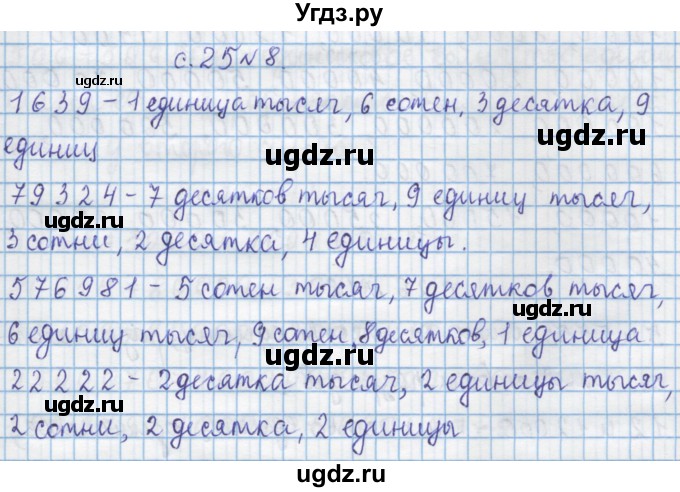 Угдз.ру
с. 25 № 8.
ugdz.ru
1639 – 1 единица тысяч, 6 сотен, 3 десятка, 9
ugdz.ru
единиц
ugdz.ru
ugdz.ru
79324 – 7 десятков тысяч, 9 единиц тысяч,
ugdz.ru
ugdz.ru
3 сотни, 2 десятка, 4 единицы.
ugdz.ru
576981 – 5 сотен тысяч, 7 десятков тысяч,
ugdz.ru
6 единиц тысяч, 9 сотен, 8 десятков, 1 единица
ugdz.ru
22222 – 2 десятка тысяч, 2 единицы тысяч,
ugdz.ru
ugdz.ru
2 сотни, 2 десятка, 2 единицы
ugdz.ru